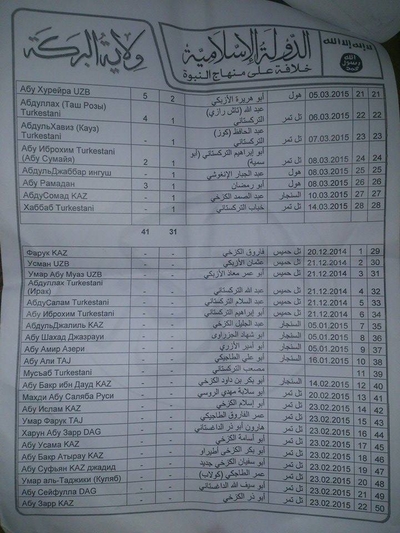 لا إله إلا الله
الله
رسول
محمد
الدولة الإسلامية
خلافة على منهاج النبوة
ولاية البركة
Абу Хурейра UZB 5 2 أبو هريرة الأزبكي هول 05.03.2015 21 21
Абдуллах (Таш Розы) Turkestani 4 1 عبد الله (تاش رازي) التركستاني تل تمر 06.03.2015 22 22
АбдульХавиз (Кауз) Turkestani - 1 عبد الحافظ (كوز) التركستاني تل تمر 07.03.2015 23 23
Абу Иброхим Turkestani (Абу Сумайя) 2 1 أبو إبراهيم التركستاني (أبو سمية) تل تمر 08.03.2015 24 24
АбдульДжаббар ингуш - 1 عبد الجبار الإنغوشي هول 08.03.2015 25 25
Абу Рамадан 3 1 أبو رمضان هول 08.03.2015 26 26
АбдуСомад KAZ - 1 عبد الصمد الكزخي السنجار 10.03.2015 27 27
Хаббаб Turkestani - 1 خباب التركستاني تل تمر 14.03.2015 28 28
41 31
Фарук KAZ - - فاروق الكزخي تل حميس 20.12.2014 1 29
Усман UZB - - عثمان الأزبكي تل حميس 21.12.2014 2 30
Умар Абу Муаз UZB - - أبو عمر معاذ الأزبكي تل حميس 21.12.2014 3 31
Абдуллах Turkestani (Ираз) - - عبد الله التركستاني تل حميس 21.12.2014 4 32
АбдуСалам Turkestani - - عبد السلام التركستاني تل حميس 21.12.2014 5 33
Абу Иброхим Turkestani - - أبو إبراهيم التركستاني تل حميس 21.12.2014 6 34
АбдульДжалиль KAZ - - عبد الجليل الكزخي السنجار 05.01.2015 7 35
Абу Шахад Джазрауи - - أبو شهاد الجزراوي السنجار 05.01.2015 8 36
Абу Амир Азери - - أبو أمير الأزري السنجار 05.01.2015 9 37
Абу Али TAJ - - أبو علي الطاجيكي السنجار 16.01.2015 10 38
Мусъаб Turkestani - - مصعب التركستاني 11 39
Абу Бакр ибн Дауд KAZ - - أبو بكر بن داود الكزخي السنجار 14.02.2015 12 40
Махди Абу Саляба Руси - - مهدي الروسي تل تمر 20.02.2015 13 41
Абу Ислам KAZ - - أبو إسلام الكزخي تل تمر 23.02.2015 14 42
Умар Фарук TAJ - - عمر الفاروق الطاجيكي تل تمر 23.02.2015 15 43
Харун Абу Зарр DAG - - هارون أبو ذر الداغستاني تل تمر 23.02.2015 16 44
Абу Усама KAZ - - أبو أسامة الكزخي تل تمر 23.02.2015 17 45
Абу Бакр Атырау KAZ - - أبو بكر الكزخي أطيراو تل تمر 23.02.2015 18 46
Абу Суфьян KAZ джадид - - أبو سفيان الكزخي جديد تل تمر 23.02.2015 19 47
Умар аль-Таджики (Куляб) - - عمر الطاجكي (كولاب) تل تمر 23.02.2015 20 48
Абу Сейфулла DAG - - أبو سيف الله الداغستاني تل تمر 23.02.2015 21 49
Абу Зарр KAZ - - أبو ذر الكزخي تل تمر 23.02.2015 22 50